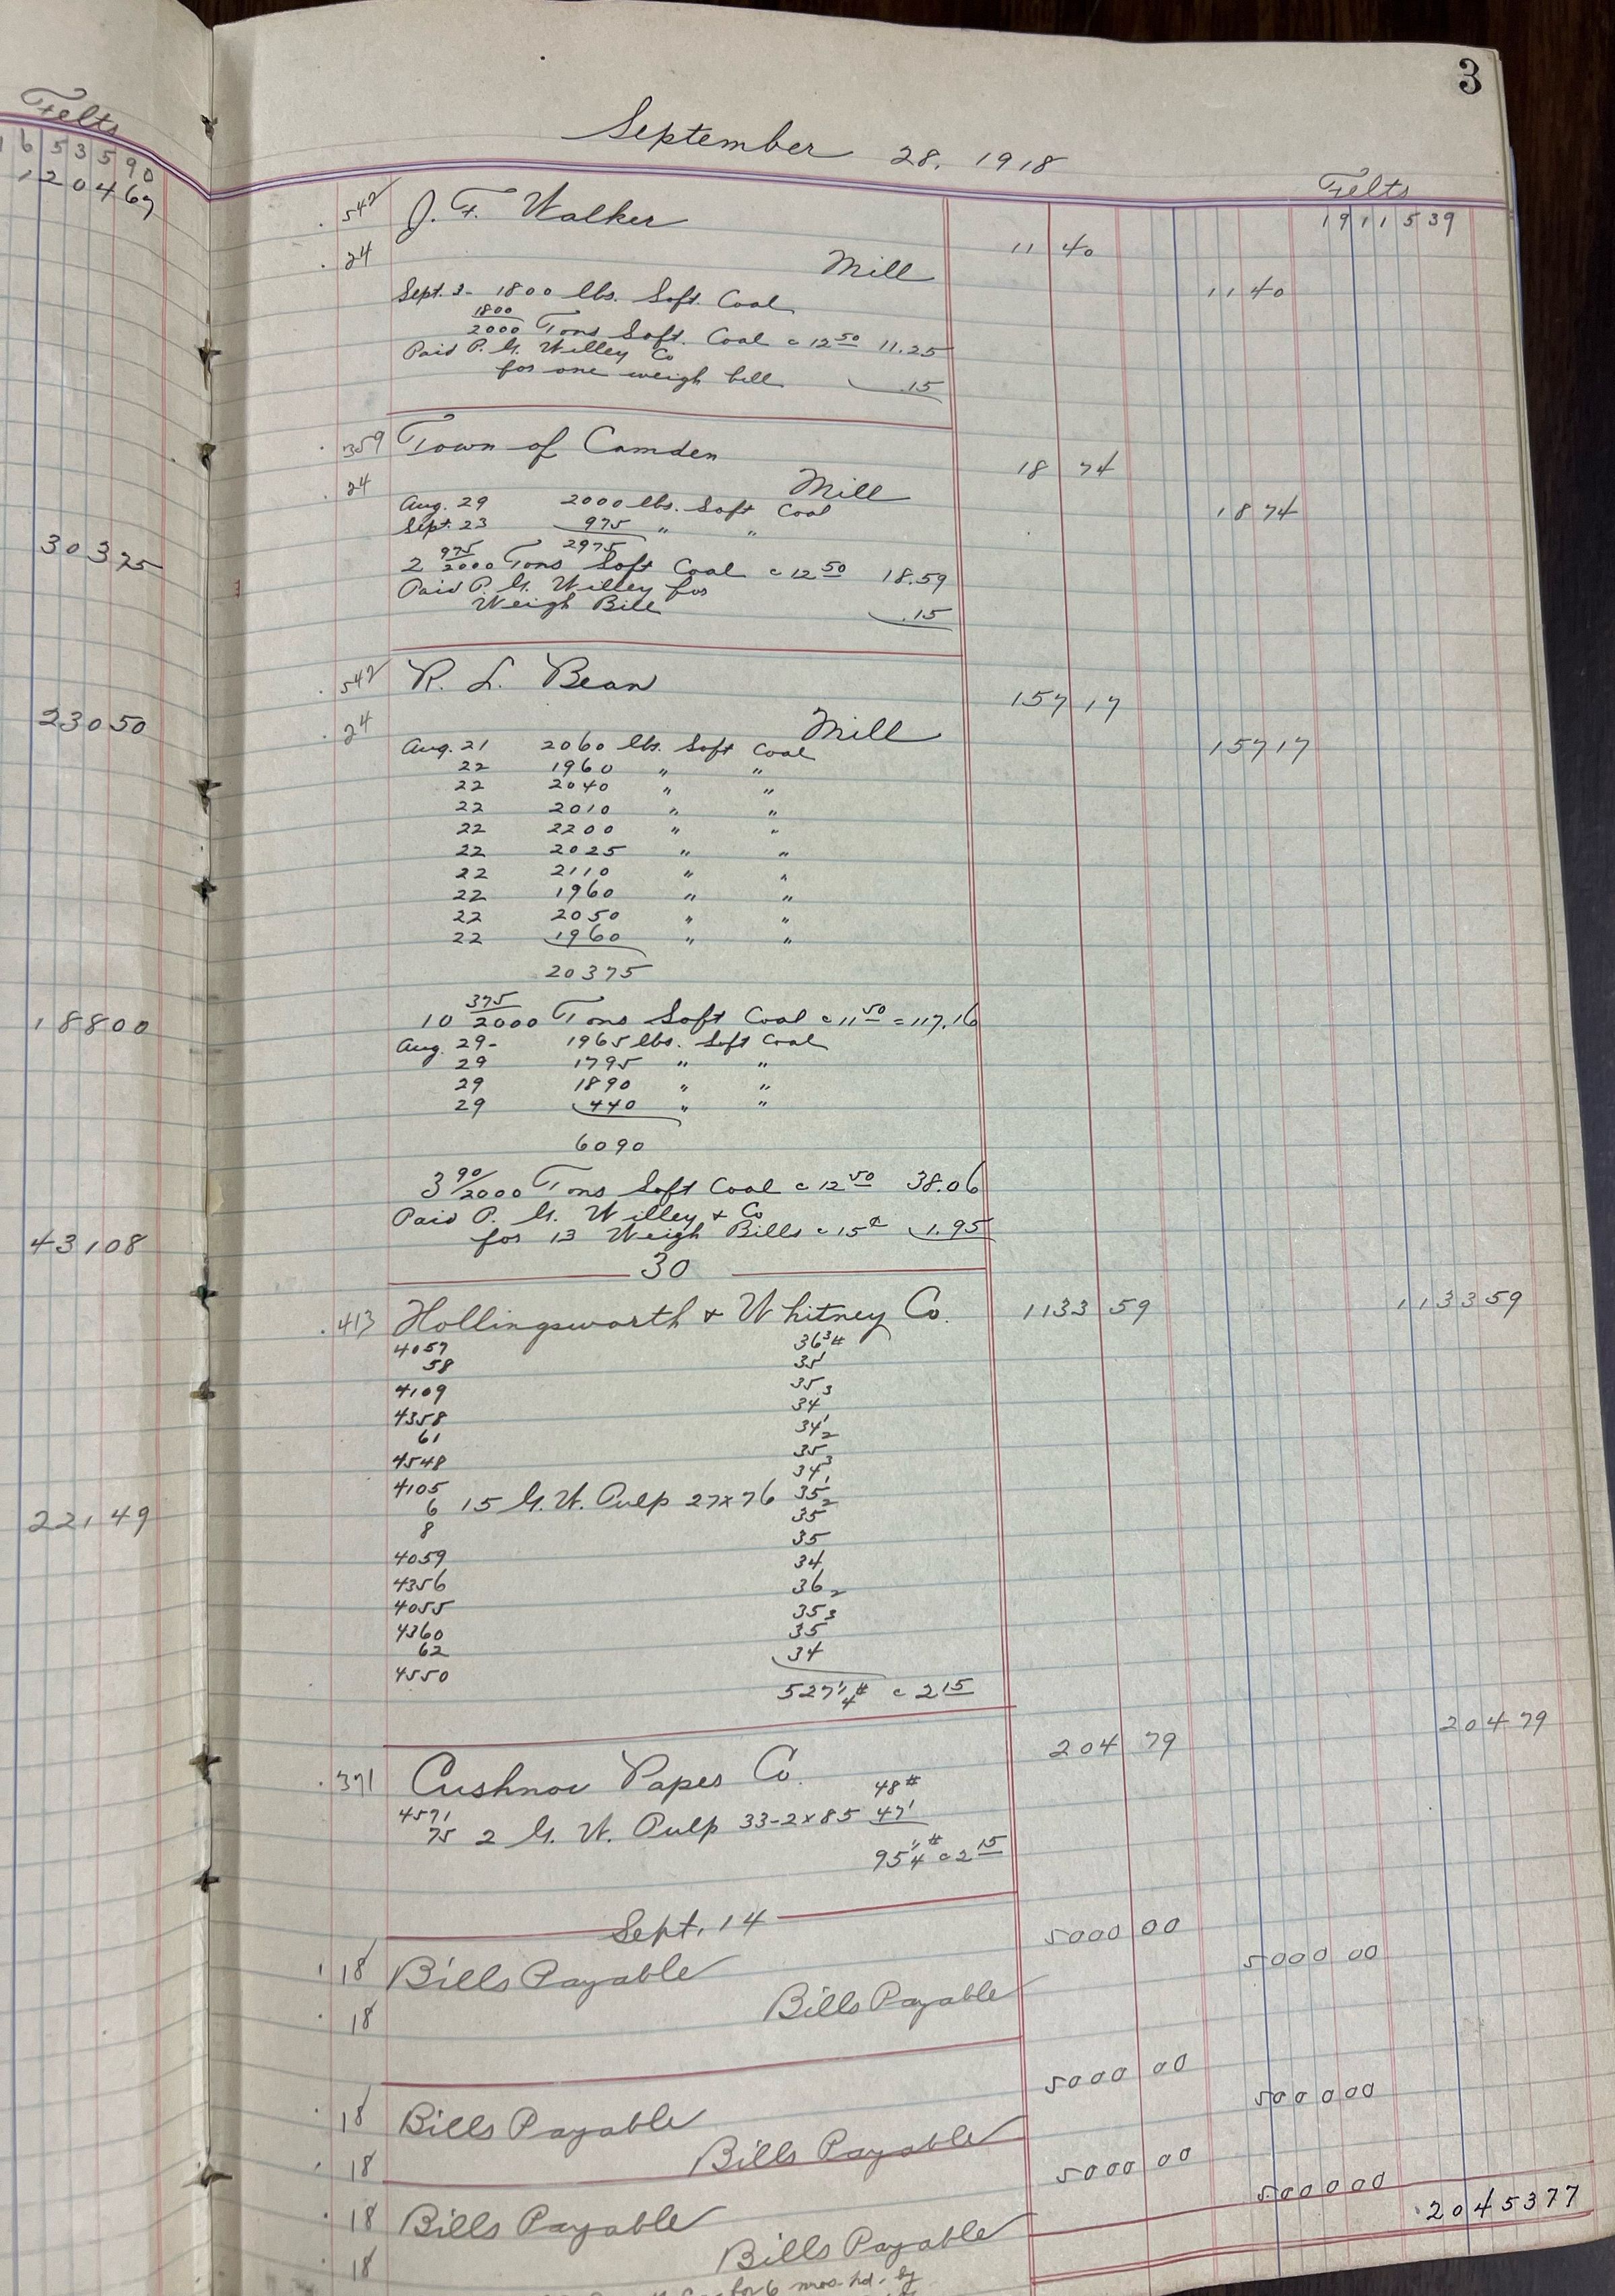 Felts
1653590
120467
30325
23050
18800
43108
22149
3
September 28. 1918
Felts
1911539
542 J. F. Walker 11 40
24 Mill 11 40
Sept. 3- 1800 lbs. Soft Coal
1800/2000 Tons Soft Coal @ 12 50 11.25
Paid P. G. Willey Co
for one weigh bill .15
359 Town of Camden 18 74
24 Mill 18 74
Aug. 29 2000 lbs. Soft Coal
Sept. 23 975 " "
2975
2 975/2000 Tons Soft Coal @ 12 50 18.59
Paid P. G. Willey for
Weigh Bill .15
542 R. L. Bean 157 17
24 Mill 157 17
Aug. 21 2060 lbs. Soft Coal
22 1960 " "
22 2040 " "
22 2010 " "
22 2200 " "
22 2025 " "
22 2110 " "
22 1960 " "
22 2050 " "
22 1960 " "
20375
10 375/2000 Tons Soft Coal @ 11 50 = 117.16
Aug. 29- 1965 lbs. Soft Coal
29 1795 " "
29 1890 " "
29 440 " "
6090
3 90/2000 Tons Soft Coal @ 12 50 38.06
Paid P. G. Willey & Co
for 13 Weigh Bills @ 15¢ 1.95
30
413 Hollingsworth & Whitney Co. 1133 59 1133 59
4057 36 3 #
58 35
4109 35 3
4358 34
61 34 1 2
4548 35
4105 34 3
6 15 G. W. Pulp 27x76 35 1 2
8 35
4059 35
4356 34
4055 36 2
4360 35 3
62 35
4550 34
527 1/4 # @ 2 15
371 Cushnoc Paper Co. 204 79 204 79
4571 48 #
75 2 G. W. Pulp 33-2x85 47 1
95 1/4 # @ 2 15
Sept. 14
18 Bills Payable 5000 00
18 Bills Payable 5000 00
18 Bills Payable 5000 00
18 Bills Payable 5000 00
18 Bills Payable 5000 00
18 Bills Payable 5000 00
2045377
for 6 mos. hd. by